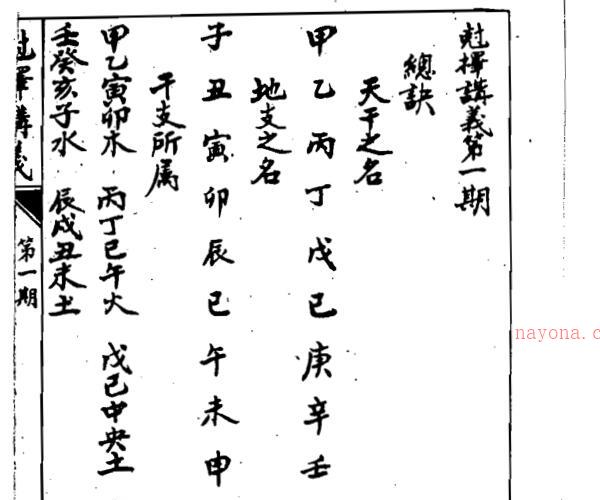 尅擇講義第一期
總訣
天干之名
甲乙丙丁戊己庚辛壬
地支之名
子丑寅卯辰巳午未申
干支所属
甲乙寅卯木 丙丁巳午火 戊己中央土
壬癸亥子水 辰戌丑未土
尅擇講義 第一期
nayona.c